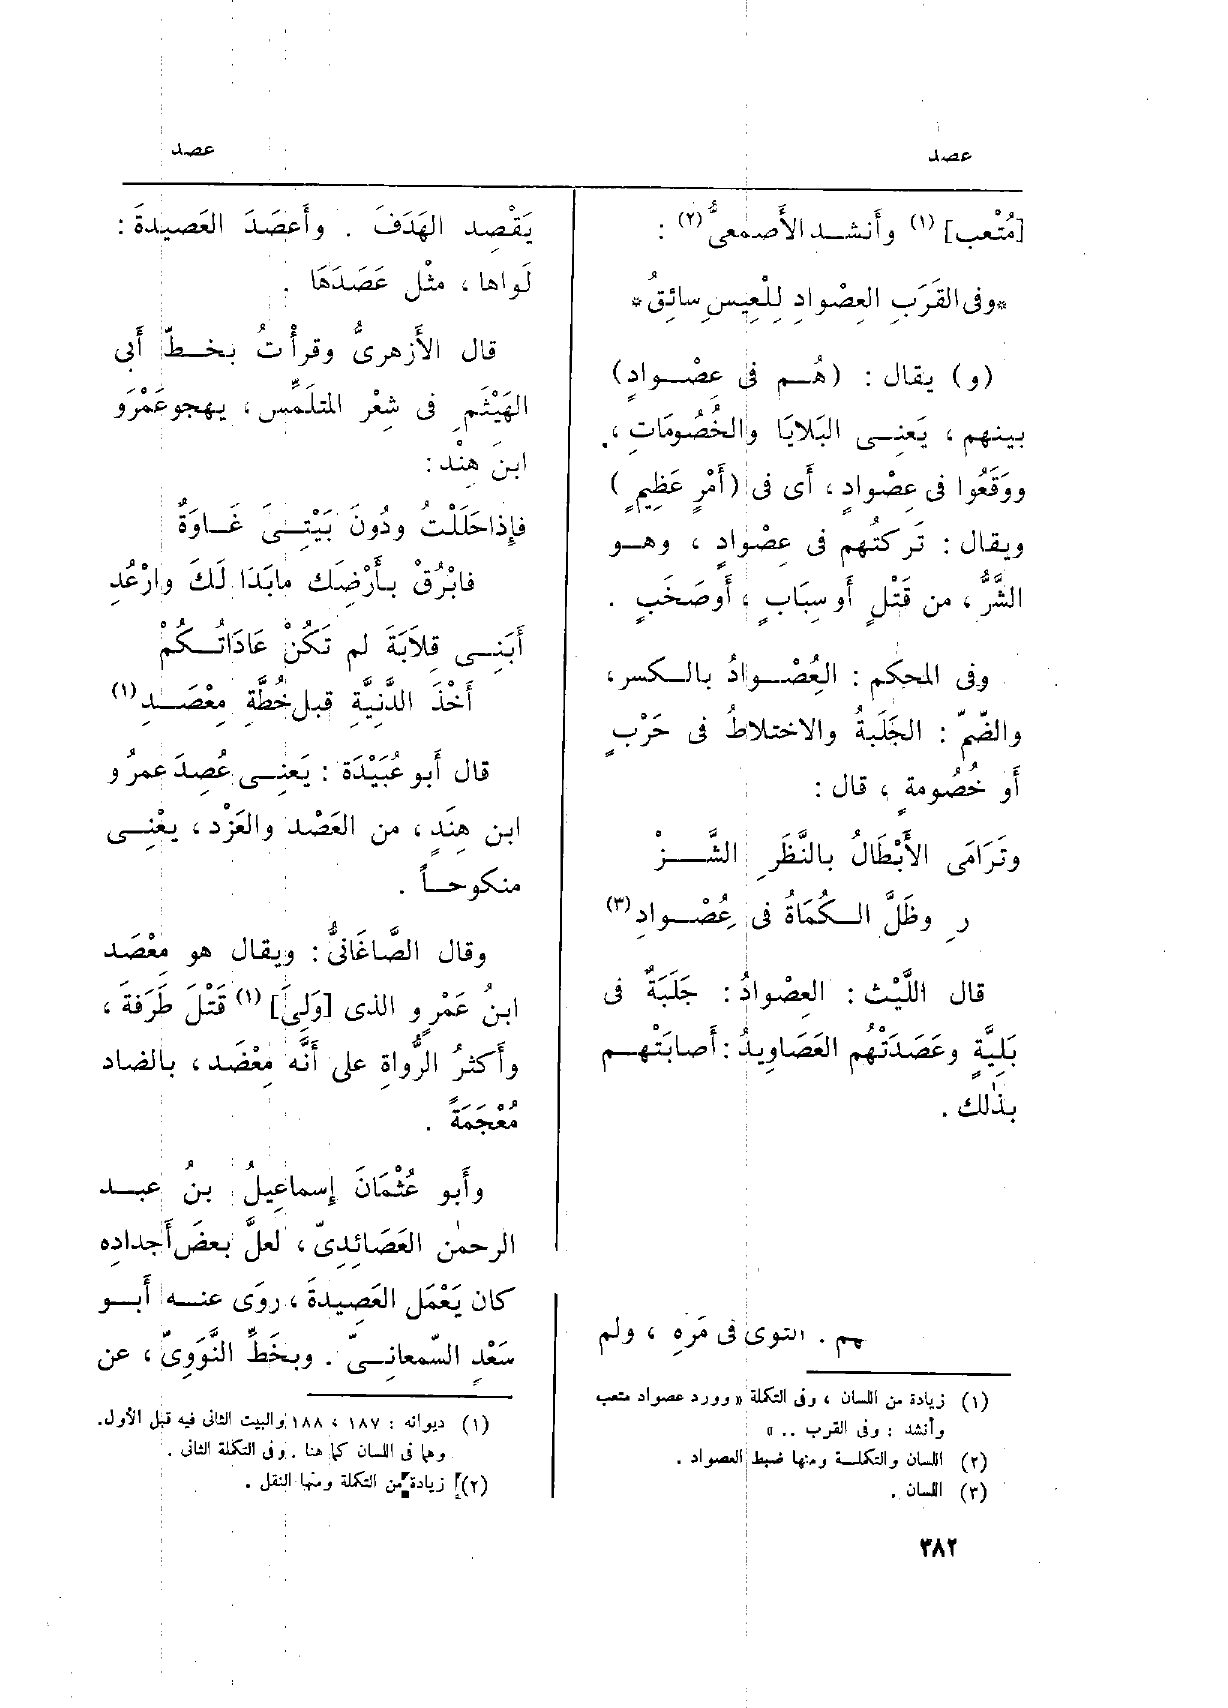 عصد
عصد
[مُتْعب] (١) وأَنشد الأَصمعىُّ (٢) :
*وفى القَرَبِ العِصْوادِ لِلْعِيسِ سائِقُ*
(و) يقال : (هُم فى عِصْوادٍ)
بينهم ، يَعنِى البَلايَا والخُصُومَاتِ ،
ووَقَعُوا فى عِصْوادٍ ، أى فى (أَمْرٍ عَظِيمٍ )
ويقال : تَركتُهم فى عِصْوادٍ ، وهو
الشَّرُّ ، من قَتْلٍ أَو سِبَابٍ ، أَوصَخَبٍ .
وفى المحكم : العُِصْوادُ بالكسر ،
والضّمّ : الجَلَبةُ والاختلاطُ فى حَرْبٍ
أَو خُصُومةٍ ، قال :
وتَرَامَى الأَبْطَالُ بالنَّظَرِ الشَّزْ
رِ وظَلَّ الكُمَاةُ فى عُِصْوادِ (٣)
قال اللَّيْث : العِصْوادُ : جَلَبَةٌ فى
بَلِيَّةٍ وعَصَدَتْهُم العَصَاوِيدُ : أَصابَتْهم
بذٰلك .
هم . التوى فى مَره ، ولم
(١) زيادة من اللسان ، وفى التكملة « وورد عصواد متعب
وأنشد : وفى القرب .. »
(٢) اللسان والتكملة ومنها ضبط العصواد .
(٣) اللسان .
يَقْصِد الهَدَفَ . وأَعصَدَ العَصيدةَ :
لَواها ، مثْل عَصَدَهَا .
قال الأَزهرىُّ وقرأْتُ بخطّ أَبى
الهَيْثَمِ فى شِعْر المتلَمِّس ، يهجو عَمْرَو
ابنَ هِنْد :
فإِذا حَلَلْتُ ودُونَ بَيْتِىَ غَاوَةٌ
فابْرُقْ بأَرْضِكَ مابَدَا لَكَ وارْعُدِ
أَبَنِى قِلَابَةَ لم تَكُنْ عَادَاتُكُمْ
أَخْذَ الدَّنِيَّةِ قبل خُطَّةِ مِعْصَدِ (١)
قال أَبو عُبَيْدَة : يَعنِى عُصِدَ عمرُو
ابن هِنَدٍ ، من العَصْد والعَزْد ، يعْنِى
منكوحاً .
وقال الصَّاغَانىُّ : ويقال هو مِعْصَد
ابنُ عَمْرٍو الذى [وَلِىَ] (١) قَتْلَ طَرَفةَ ،
وأَكثرُ الرُّواةِ على أَنَّه مِعْضَد ، بالضاد
مُعْجَمَةً .
وأَبو عُثْمَانَ إِسماعِيلُ بنُ عبد
الرحمٰن العَصَائِدِىّ ، لعلَّ بعضَ أَجداده
كان يَعْمَل العَصِيدةَ ، روَى عنه أَبو
سَعْدٍ السّمعانِىّ . وبخَطِّ النَّوَوِىّ ، عن
(١) ديوانه : ١٨٧ ، ١٨٨ والبيت الثانى فيه قبل الأول.
وهما فى اللسان كما هنا . وفى التكملة الثانى .
(٢) زيادة من التكملة ومنها النقل .
٣٨٢